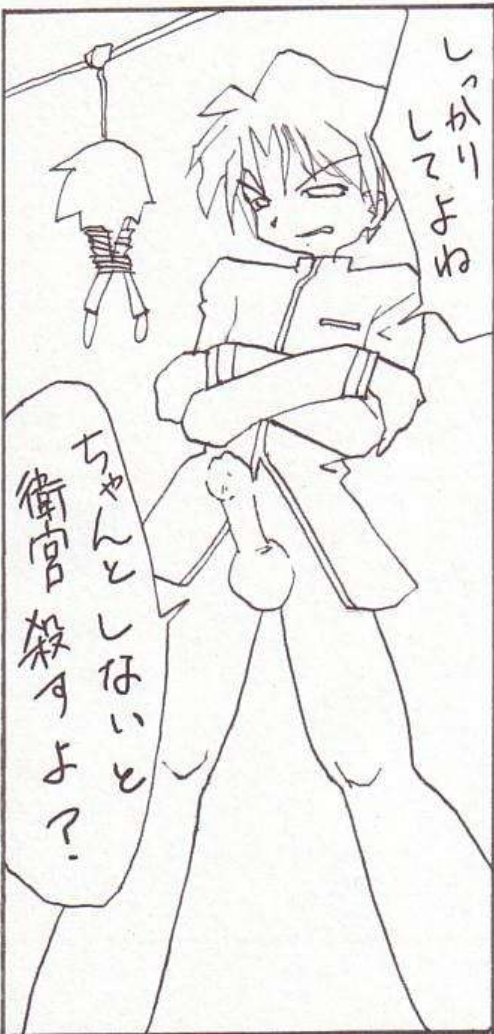 しっかり
してよね
ちゃんとしないと
衛宮殺すよ?